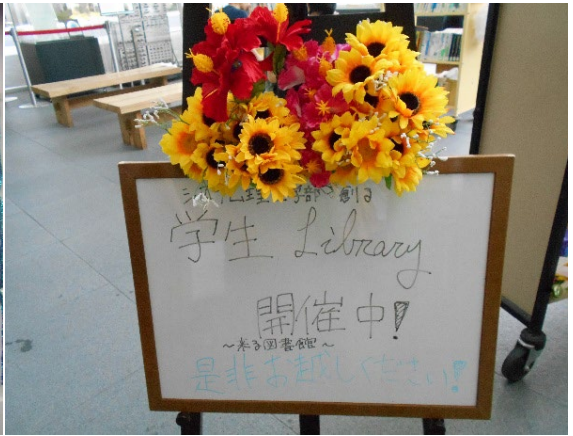 創る
学生 Library
開催中!
～来る図書館～
是非お越しください!